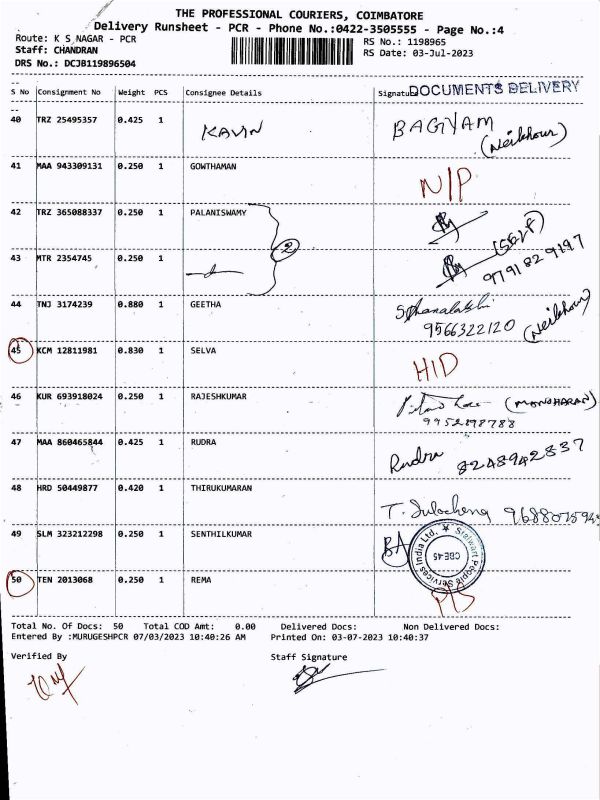 THE PROFESSIONAL COURIERS, COIMBATORE
Delivery Runsheet - PCR - Phone No.:0422-3505555 - Page No.:4
Route: K S NAGAR - PCR
RS No.: 1198965
Staff: CHANDRAN
RS Date: 03-Jul-2023
DRS No.: DCJB119896504
S No Consignment No Weight PCS Consignee Details Signature DOCUMENTS DELIVERY
40 TRZ 25495357 0.425 1 KAVIN BAGYAM
(Neibhour)
41 MAA 943309131 0.250 1 GOWTHAMAN N/P
42 TRZ 365088337 0.250 1 PALANISWAMY
2 (SELF)
43 MTR 2354745 0.250 1 9791829197
44 TNJ 3174239 0.880 1 GEETHA
9566322120 (Neibhour)
45 KCM 12811981 0.830 1 SELVA HID
46 KUR 693918024 0.250 1 RAJESHKUMAR (MANOHARAN)
9952898788
47 MAA 860465844 0.425 1 RUDRA Rudra 8248942837
48 HRD 50449877 0.420 1 THIRUKUMARAN T. Sulochena
49 SLM 323212298 0.250 1 SENTHILKUMAR
Stalwart People Services India Ltd.
CBE-45
50 TEN 2013068 0.250 1 REMA
Total No. Of Docs: 50 Total COD Amt: 0.00 Delivered Docs: Non Delivered Docs:
Entered By :MURUGESHPCR 07/03/2023 10:40:26 AM Printed On: 03-07-2023 10:40:37
Verified By Staff Signature